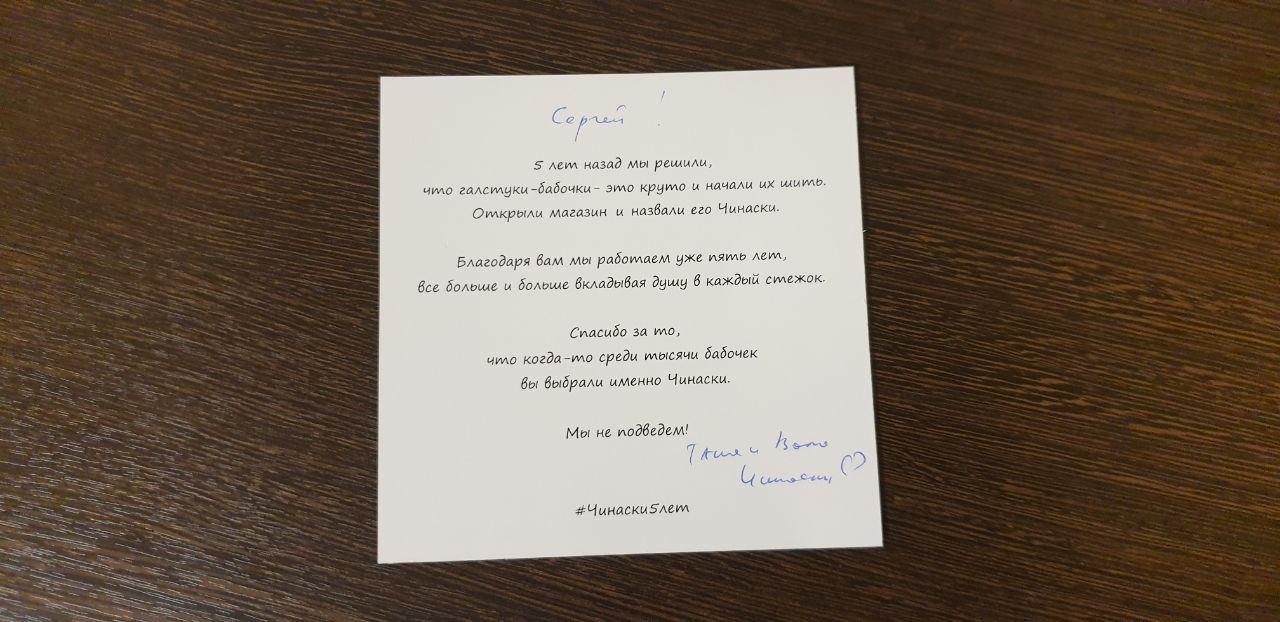 Сергей !
5 лет назад мы решили,
что галстуки-бабочки- это круто и начали их шить.
Открыли магазин и назвали его Чинаски.
Благодаря вам мы работаем уже пять лет,
все больше и больше вкладывая душу в каждый стежок.
Спасибо за то,
что когда-то среди тысячи бабочек
вы выбрали именно Чинаски.
Мы не подведем!
и
Чинаски
#Чинаски5лет